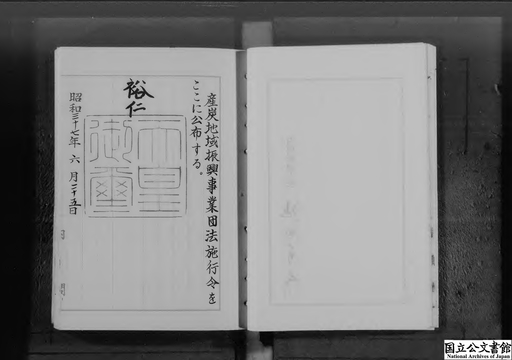 産炭地域振興事業団法施行令を
ここに公布する。
裕仁
天皇御璽
昭和三十七年六月二十五日
国立公文書館
National Archives of Japan